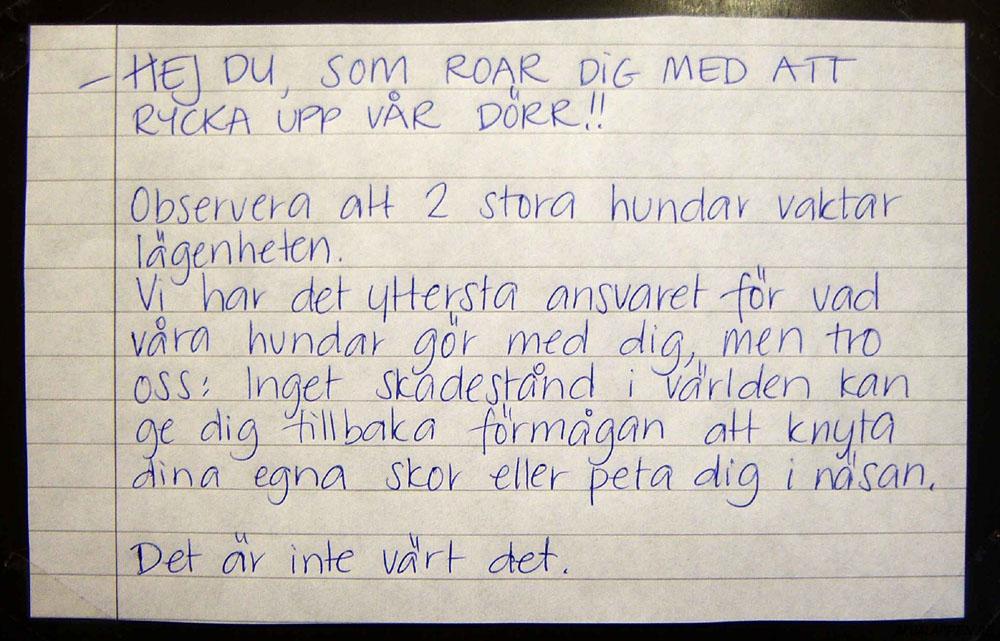 – HEJ DU, SOM ROAR DIG MED ATT
RYCKA UPP VÅR DÖRR!!
Observera att 2 stora hundar vaktar
lägenheten.
Vi har det yttersta ansvaret för vad
våra hundar gör med dig, men tro
oss: Inget skadestånd i världen kan
ge dig tillbaka förmågan att knyta
dina egna skor eller peta dig i näsan.
Det är inte värt det.